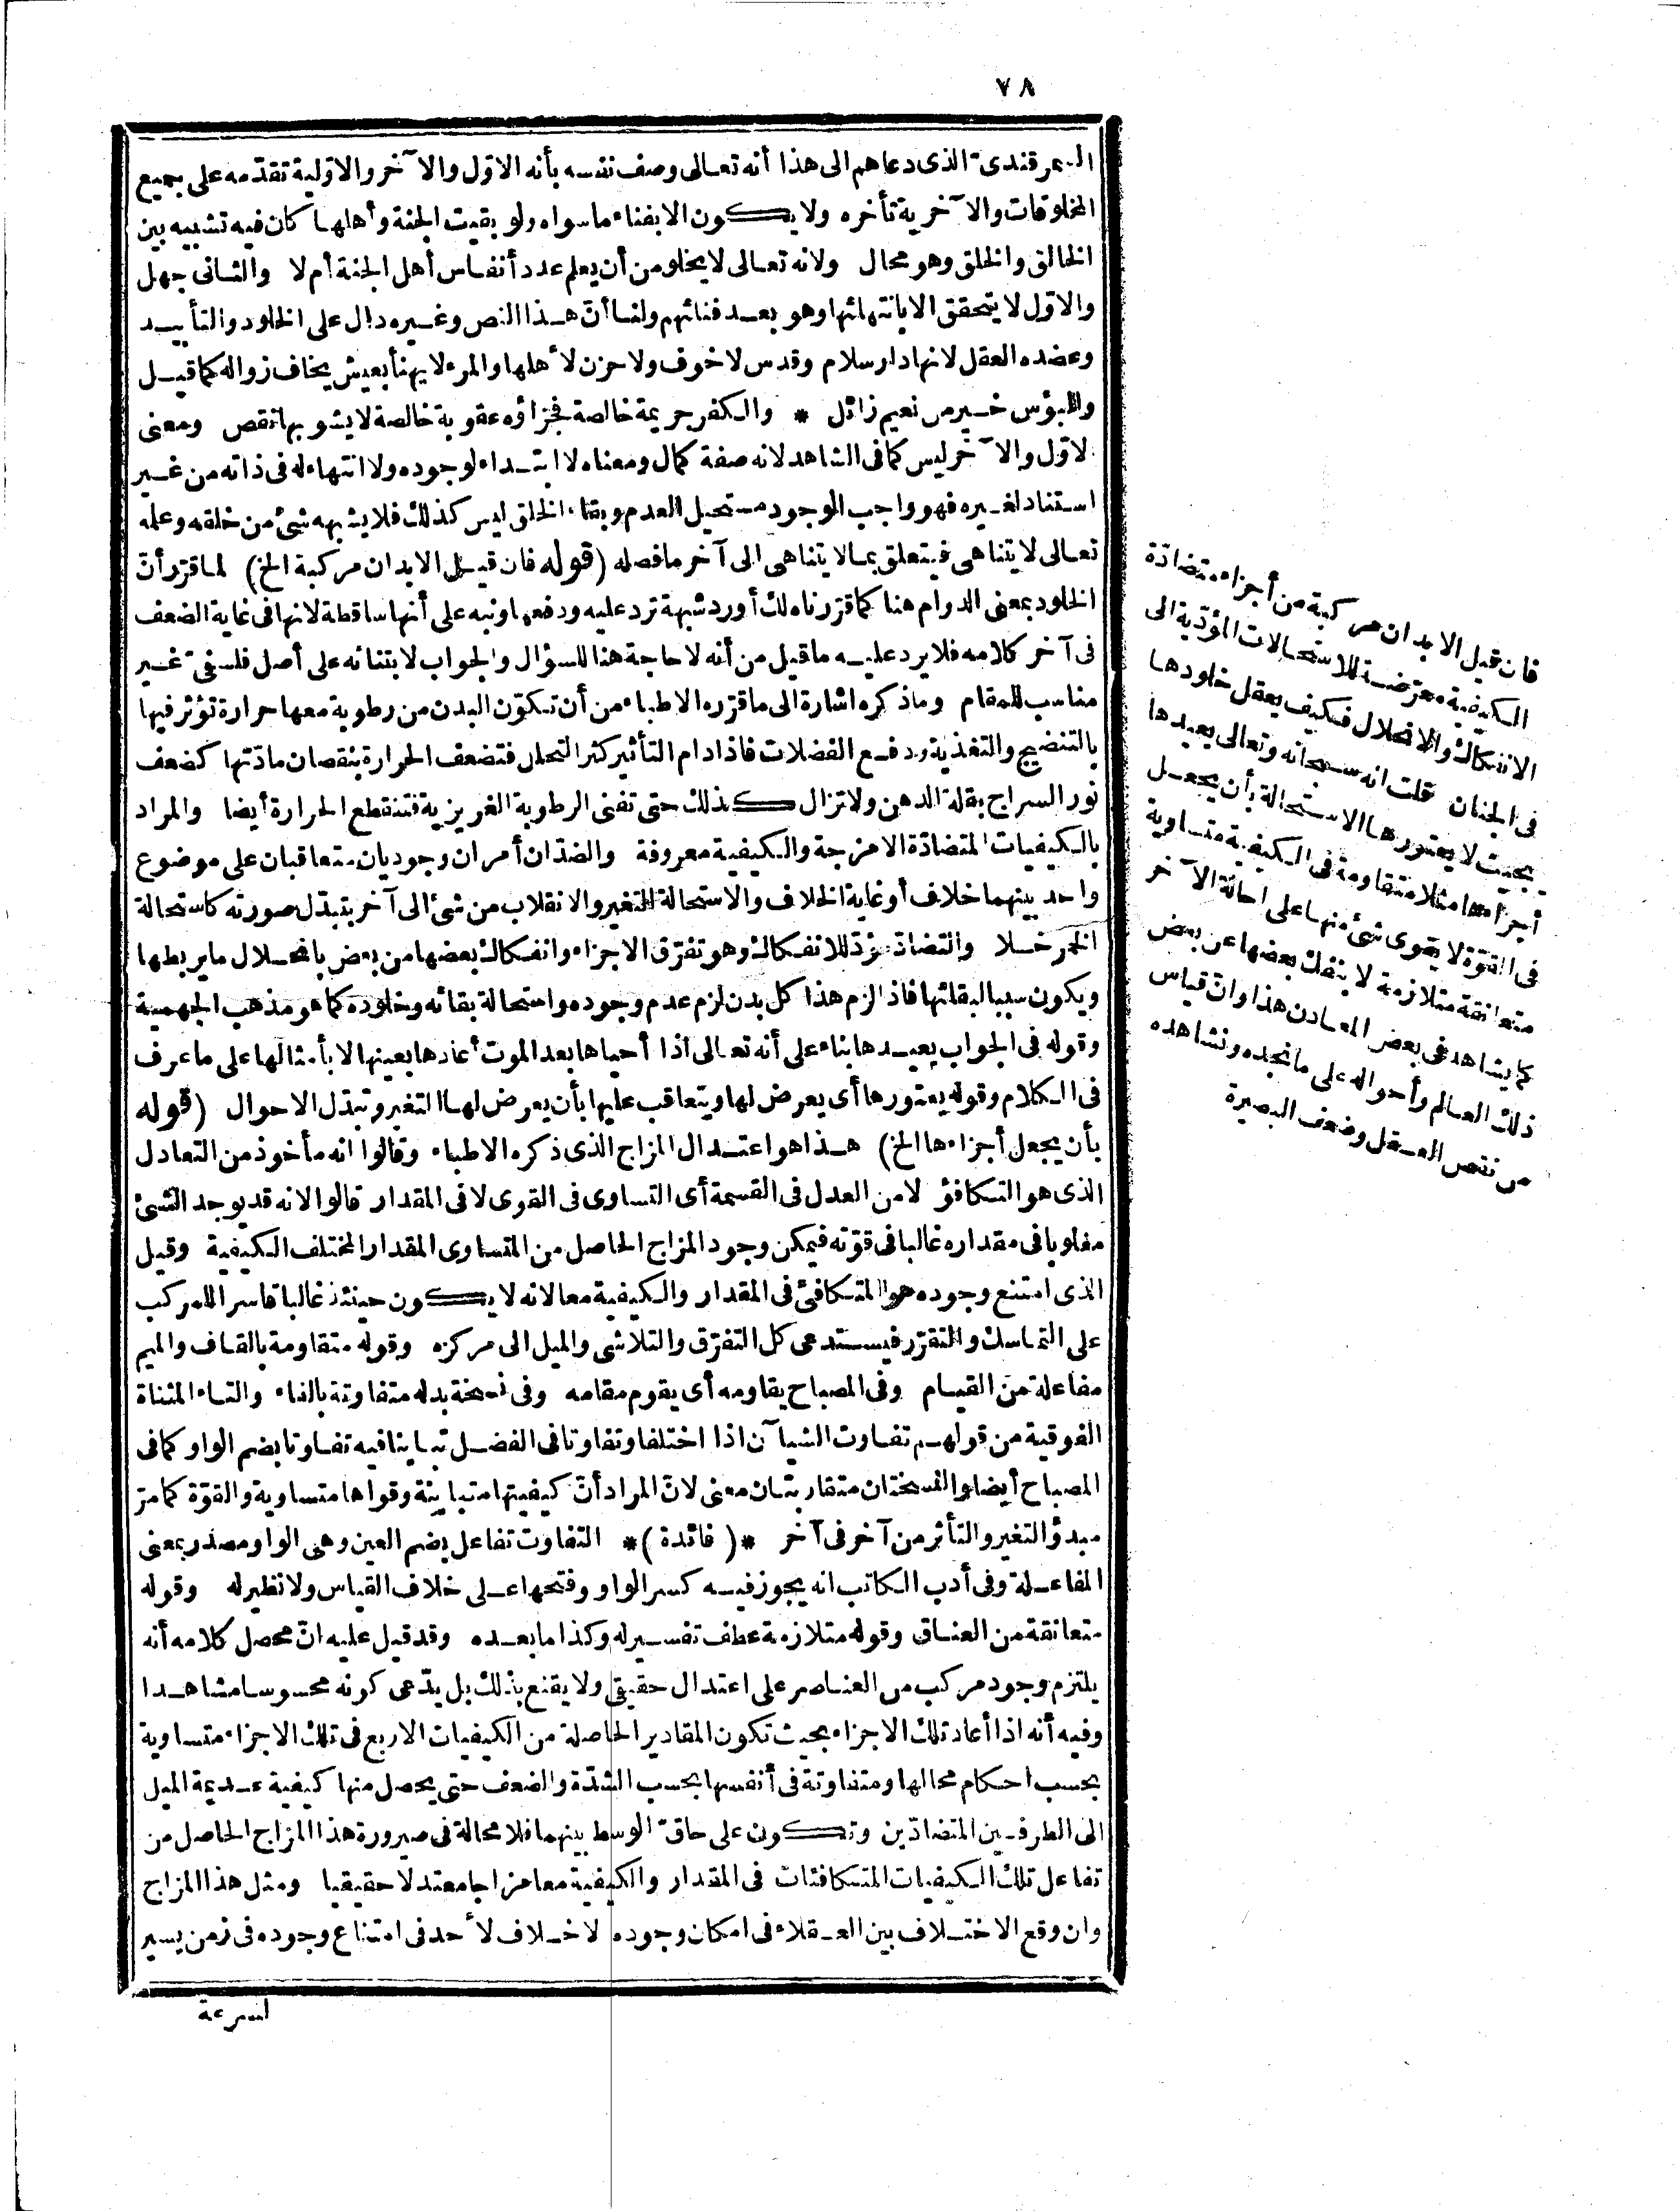 ٧٨
السمرقندىّ الذى دعاهم الى هذا أنه تعالى وصف نفسه بأنه الاوّل والآخر والاوّلية تقدّمه على جميع
المخلوقات والآخرية تأخره ولا يكون الا بفناء ما سواه ولو بقيت الجنة وأهلها كان فيه تشبيه بين
الخالق والخلق وهو محال ولانه تعالى لا يخلو من أن يعلم عدد أنفاس أهل الجنة أم لا والثانى جهل
والاوّل لا يتحقق الا بانتهائها وهو بعد فنائهم ولنا أنّ هذا النص وغيره دال على الخلود والتأبيد
وعضده العقل لانها دار سلام وقدس لا خوف ولا حزن لأهلها والمرء لا يهنأ بعيش يخاف زواله كما قيل
والبؤس خير من نعيم زائل * والكفر جريمة خالصة فجزاؤه عقوبة خالصة لا يشوبها نقص ومعنى
لاوّل والآخر ليس كما فى الشاهد لانه صفة كمال ومعناه لا ابتداء لوجوده ولا انتهاء له فى ذاته من غير
استناد لغيره فهو واجب الوجود مستحيل العدم وبقاء الخلق ليس كذلك فلا يشبهه شئ من خلقه وعلمه
تعالى لا يتناهى فيتعلق بما لا يتناهى الى آخر ما فصله (قوله فان قيل الابدان مركبة الخ) لما قرّر أنّ
الخلود بمعنى الدوام هنا كما قرّرناه لك أورد شبهة ترد عليه ودفعها ونبه على أنها ساقطة لانها فى غاية الضعف
فى آخر كلامه فلا يرد عليه ما قيل من أنه لا حاجة هنا للسؤال والجواب لابتنائه على أصل فلسفىّ غير
مناسب للمقام وما ذكره اشارة الى ما قرّره الاطباء من أن تكوّن البدن من رطوبة معها حرارة تؤثر فيها
بالتنضيج والتغذية ودفع الفضلات فاذا دام التأثير كثر التحلل فتضعف الحرارة بنقصان مادّتها كضعف
نور السراج بقلة الدهن ولا تزال كذلك حتى تفنى الرطوبة الغريزية فتنقطع الحرارة أيضا والمراد
بالكيفيات المتضادّة الامزجة والكيفية معروفة والضدّان أمران وجوديان متعاقبان على موضوع
واحد بينهما خلاف أو غاية الخلاف والاستحالة التغير والانقلاب من شئ الى آخر بتبدّل صورته كاستحالة
الخمر خلا والتضادّ مؤدّ للانفكاك وهو تفرّق الاجزاء وانفكاك بعضها من بعض بانحلال ما يربطها
ويكون سببا لبقائها فاذا لزم هذا كل بدن لزم عدم وجوده واستحالة بقائه وخلوده كما هو مذهب الجهمية
وقوله فى الجواب يعيدها بناء على أنه تعالى اذا أحياها بعد الموت أعادها بعينها لا بأمثالها على ما عرف
فى الكلام وقوله يعتورها أى يعرض لها ويتعاقب عليها بأن يعرض لها التغير وتبدّل الاحوال (قوله
بأن يجعل أجزاءها الخ) هذا هو اعتدال المزاج الذى ذكره الاطباء وقالوا انه مأخوذ من التعادل
الذى هو التكافؤ لا من العدل فى القسمة أى التساوى فى القوى لا فى المقدار قالوا لانه قد يوجد الشئ
مغلوبا فى مقداره غالبا فى قوّته فيمكن وجود المزاج الحاصل من المتساوى المقدار المختلف الكيفية وقيل
الذى امتنع وجوده هو المتكافئ فى المقدار والكيفية معا لانه لا يكون حينئذ غالبا قاسر المركب
على التماسك والتقرّر فيستدعى كل التفرّق والتلاشى والميل الى مركزه وقوله متقاومة بالقاف والميم
مفاعلة من القيام وفى المصباح يقاومه أى يقوم مقامه وفى نسخة بدله متفاوتة بالفاء والتاء المثناة
الفوقية من قولهم تفاوت الشيآن اذا اختلفا وتفاوتا فى الفضل تباينا فيه تفاوتا بضم الواو كما فى
المصباح أيضا والنسختان متقاربتان معنى لانّ المراد أنّ كيفيتها متباينة وقواها متساوية والقوّة كما مرّ
مبدؤ التغير والتأثر من آخر فى آخر *(فائدة)* التفاوت تفاعل بضم العين وهى الواو مصدر بمعنى
المفاعلة وفى أدب الكاتب انه يجوز فيه كسر الواو وفتحها على خلاف القياس ولا نظير له وقوله
متعانقة من العناق وقوله متلازمة عطف تفسير له وكذا ما بعده وقد قيل عليه انّ محصل كلامه أنه
يلتزم وجود مركب من العناصر على اعتدال حقيقىّ ولا يقنع بذلك بل يدّعى كونه محسوسا مشاهدا
وفيه أنه اذا أعاد تلك الاجزاء بحيث تكون المقادير الحاصلة من الكيفيات الاربع فى تلك الاجزاء متساوية
بحسب احكام محالها ومتفاوتة فى أنفسها بحسب الشدّة والضعف حتى يحصل منها كيفية عديمة الميل
الى الطرفين المتضادّين وتكون على حاقّ الوسط بينهما فلا محالة فى صيرورة هذا المزاج الحاصل من
تفاعل تلك الكيفيات المتكافئات فى المقدار والكيفية معا مزاجا معتدلا حقيقيا ومثل هذا المزاج
وان وقع الاختلاف بين العقلاء فى امكان وجوده لا خلاف لأحد فى امتناع وجوده فى زمن يسير
لسرعة
فان قيل الابدان مركبة من أجزاء متضادّة
الكيفية معرّضة للاستحالات المؤدّية الى
الانفكاك والانحلال فكيف يعقل خلودها
فى الجنان قلت انه سبحانه وتعالى يعيدها
بحيث لا يعتورها الاستحالة بأن يجعل
أجزاءها مثلا متقاومة فى الكيفية متساوية
فى القوّة لا يقوى شئ منها على احالة الآخر
متعانقة متلازمة لا ينفك بعضها عن بعض
كما يشاهد فى بعض المعادن هذا وانّ قياس
ذلك العالم وأحواله على ما نجده ونشاهده
من نقص العقل وضعف البصيرة